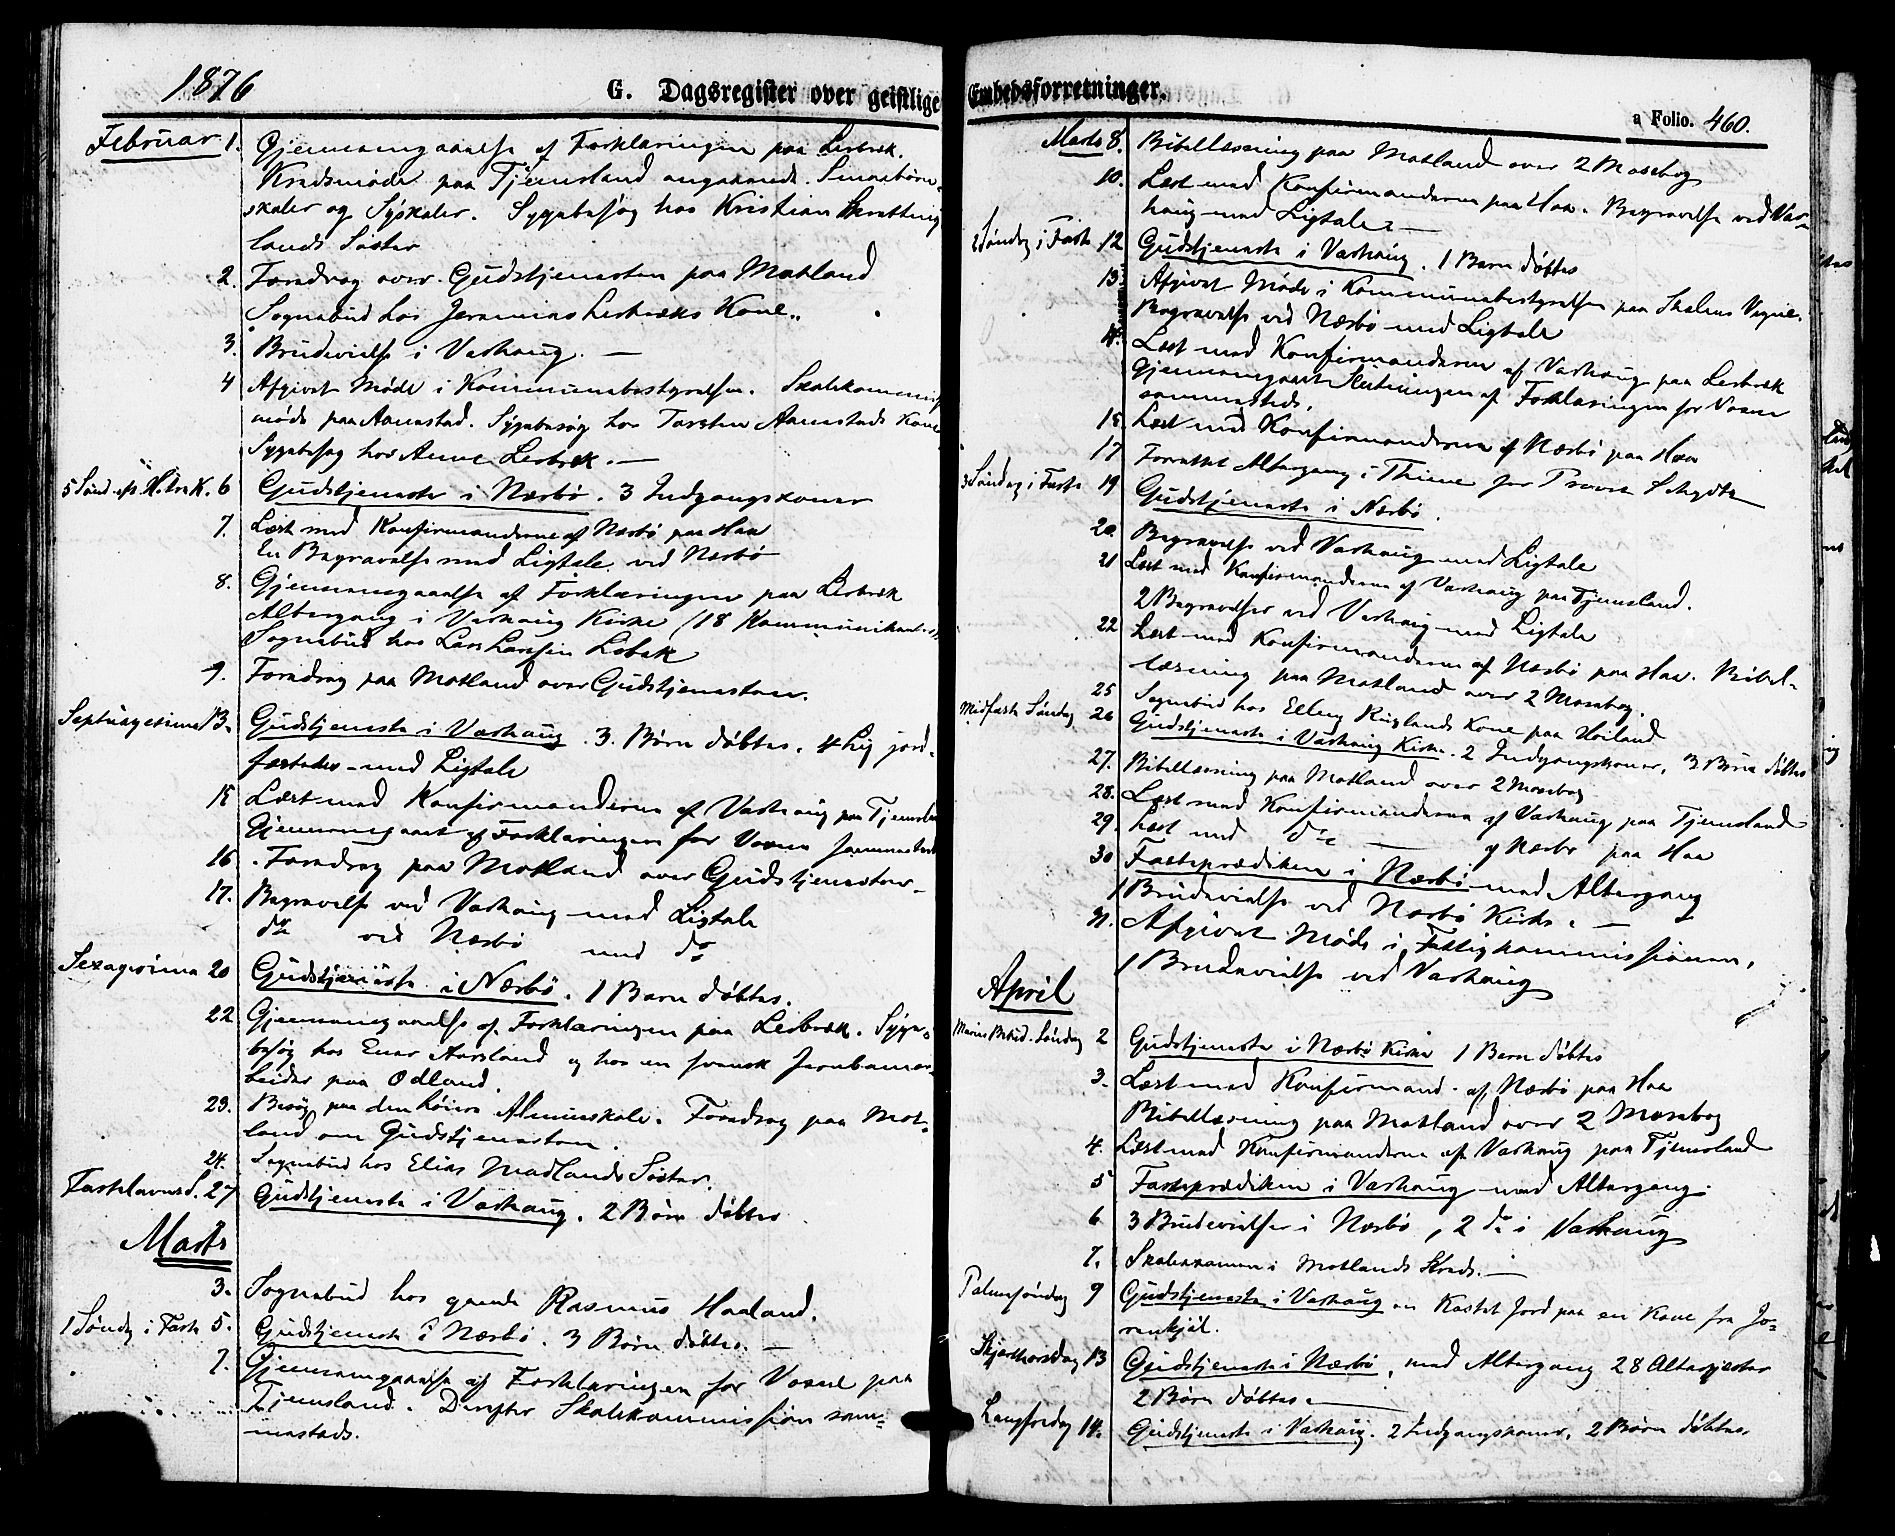 1876
G. Dagsregister over geistlige Embedsforretninger.
a Folio. 460.
Februar 1. Gjennemgaaelse af Forklaringen paa Lerbrek.
Kredsmøde paa Tjemsland angaaende Smaabørns-
skoler og Syskoler. Sygebesøg hos Kristian
lands Søster
2. Foredrag over Gudstjenesten paa Motland
Sognebud hos Jeremias Lerbreks Kone.
3. Brudevielse i Varhaug. —
4 Afgivet Møde i Kommunebestyrelsen. Skolekommis
møde paa Aanestad. Sygebesøg hos Torsten Aanestads Kone
Sygebesøg hos Anne Lerbrek. —
5 Sønd. eft. H. 3 K. 6 Gudstjeneste i Nærbø. 3 Indgangskoner
7. Læst med Konfirmanderne af Nærbø paa Haa
En Begravelse med Ligtale ved Nærbø
8. Gjennemgaaelse af Forklaringen paa Lerbrek
Altergang i Varhaug Kirke (18 Kommunikanter)
Sognebud hos Lars Larsen
9. Foredrag paa Motland over Gudstjenesten.
Septuagesima 13. Gudstjeneste i Varhaug. 3. Børn døbtes. 4 Lig jord-
fæstedes med Ligtale
15 Læst med Konfirmanderne af Varhaug paa Tjemsland
Gjennemgaaet af Forklaringen for Voxne sammesteds
16. Foredrag paa Motland over Gudstjenesten
17. Begravelse ved Varhaug med Ligtale
do ved Nærbø med do
Sexagesima 20 Gudstjeneste i Nærbø. 1 Barn døbtes.
22 Gjennemgaaelse af Forklaringen paa Lerbrek. Syge-
besøg hos Enar Aarsland og hos en svensk Jernbanear-
beider paa Odland.
23. Besøg paa den høiere Almueskole. Foredrag paa Mot-
land om Gudstjenesten.
24. Sognebud hos Elias Madlands Søster.
Fastelavns S. 27 Gudstjeneste i Varhaug. 2 Børn døbtes
Marts
3. Sognebud hos gamle Rasmus Haaland.
1 Søndg i Faste 5. Gudstjeneste i Nærbø. 3 Børn døbtes. —
7. Gjennemgaaelse af Forklaringen for Voxne paa
Tjemsland. Derefter Skolekommission sam-
mesteds.
Marts 8. Bibellæsning paa Motland over 2 Mosebog
10. Læst med Konfirmanderne paa Haa. Begravelse ved Var-
haug med Ligtale. —
2 Søndag i Faste 12 Gudstjeneste i Varhaug. 1 Barn døbtes
13. Afgivet Møde i Kommunebestyrelsen paa Skolens Vegne.
Begravelse ved Nærbø med Ligtale
14. Læst med Konfirmanderne af Varhaug paa Lerbrek
Gjennemgaaet Slutningen af Forklaringen for Voxne
sammesteds.
15. Læst med Konfirmanderne af Nærbø paa Haa
17 Forrettet Altergang i Thime for Provst
3 Søndag i Faste 19 Gudstjeneste i Nærbø.
20. Begravelse ved Varhaug med Ligtale
21 Læst med Konfirmanderne af Varhaug paa Tjemsland.
2 Begravelser ved Varhaug med Ligtale
22 Læst med Konfirmanderne af Nærbø paa Haa. Bibel-
læsning paa Motland over 2 Mosebog.
25 Sognebud hos Elling Kuglands Kone paa Høiland
Midfaste Søndag 26 Gudstjeneste i Varhaug Kirke. 2 Indgangskoner, 3 Børn døbtes
27. Bibellæsning paa Motland over 2 Mosebog
28. Læst med Konfirmanderne af Varhaug paa Tjemsland
29. Læst med do — af Nærbø paa Haa
30 Fasteprædiken i Nærbø med Altergang
1 Brudevielse ved Nærbø Kirke. —
31. Afgivet Møde i Fattigkommissionen.
1 Brudevielse ved Varhaug
April
Mariæ Bebud. Søndag 2 Gudstjeneste i Nærbø Kirke 1 Barn døbtes
3. Læst med Konfirmand. af Nærbø paa Haa
Bibellæsning paa Motland over 2 Mosebog
4. Læst med Konfirmanderne af Varhaug paa Tjemsland
5 Fasteprædiken i Varhaug med Altergang.
6 3 Brudevielser i Nærbø, 2 do i Varhaug
7. Skoleexamen i Motlands Kreds. —
Palmesøndag 9 Gudstjeneste i Varhaug en Kastet Jord paa en Kone fra Jo-
renkjøl.
Skjærthorsdag 13 Gudstjeneste i Nærbø, med Altergang 28 Altergjester
2 Børn døbtes. —
Langfredag 14. Gudstjeneste i Varhaug. 2 Indgangskoner, 2 Børn døbtes